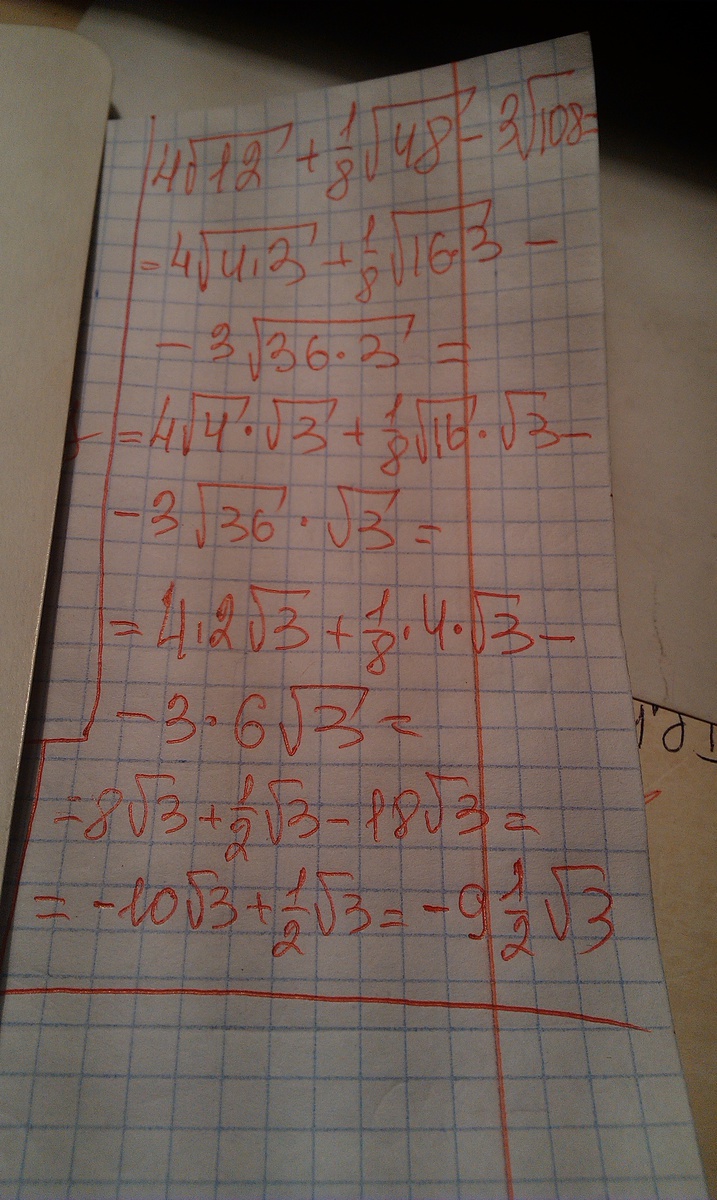 4√12 + 1/8 √48 - 3√108 =
= 4√4·3 + 1/8 √16·3 -
- 3√36·3 =
= 4√4 · √3 + 1/8 √16 · √3 -
- 3√36 · √3 =
= 4·2√3 + 1/8 · 4 · √3 -
- 3·6√3 =
= 8√3 + 1/2 √3 - 18√3 =
= -10√3 + 1/2 √3 = -9 1/2 √3